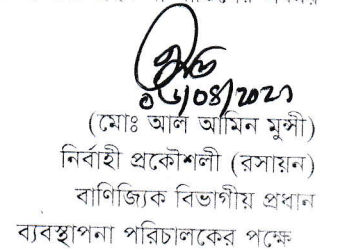 (মোঃ আল আমিন মুন্সী)
নির্বাহী প্রকৌশলী (রসায়ন)
বাণিজ্যিক বিভাগীয় প্রধান
ব্যবস্থাপনা পরিচালকের পক্ষে